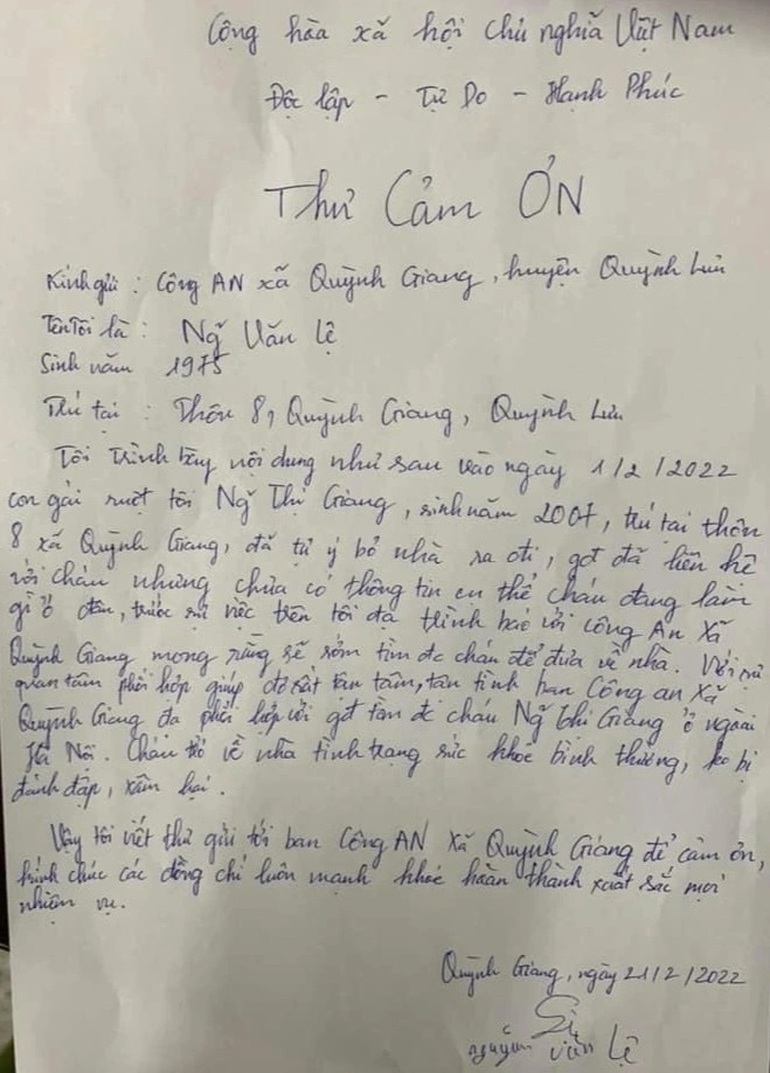 Cộng hòa xã hội chủ nghĩa Việt Nam
Độc lập - Tự Do - Hạnh Phúc
Thư Cảm ƠN
Kính gửi : Công AN xã Quỳnh Giang, huyện Quỳnh Lưu
Tên Tôi là : Ng̃ Văn Lệ
Sinh năm 1975
Trú tại : Thôn 8, Quỳnh Giang, Quỳnh Lưu
Tôi trình bày nội dung như sau vào ngày 1/2/2022
con gái ruột tôi Ng̃ Thị Giang, sinh năm 2007, trú tại thôn
8 xã Quỳnh Giang, đã tự ý bỏ nhà ra đi, gđ đã liên hệ
với cháu nhưng chưa có thông tin cụ thể cháu đang làm
gì ở đâu, trước sự việc trên tôi đã trình báo với công An Xã
Quỳnh Giang mong rằng sẽ sớm tìm đc cháu để đưa về nhà. Với sự
quan tâm phối hợp giúp đỡ rất tận tâm, tận tình ban Công an Xã
Quỳnh Giang đã phối hợp với gđ tìm đc cháu Ng̃ thị Giang ở ngoài
Hà Nội. Cháu trở về nhà tình trạng sức khỏe bình thường, ko bị
đánh đập, xâm hại.
Vậy tôi viết thư gửi tới ban Công AN Xã Quỳnh Giang để cảm ơn,
kính chúc các đồng chí luôn mạnh khỏe hoàn thành xuất sắc mọi
nhiệm vụ.
Quỳnh Giang, ngày 21/2/2022
nguyễn văn Lệ